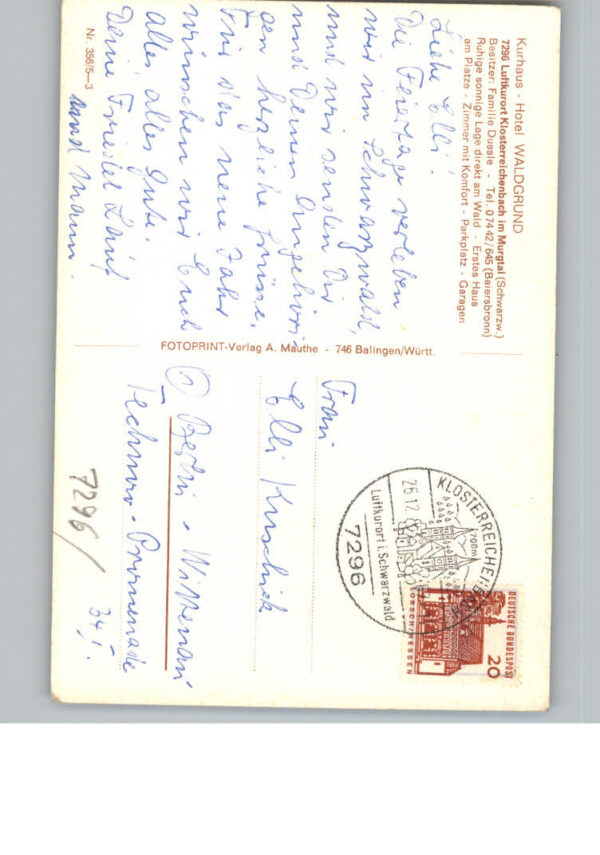 Kurhaus - Hotel WALDGRUND
7296 Luftkurort Klosterreichenbach im Murgtal (Schwarzw.)
Besitzer: Familie Dussle Tel. 07442/645 (Baiersbronn)
Ruhige sonnige Lage direkt am Wald - Erstes Haus
am Platze - Zimmer mit Komfort - Parkplatz - Garagen
Liebe Elli!
Die Feiertage verleben
wir im Schwarzwald,
und wir senden Dir
und Deinen Angehöri-
gen herzliche Grüsse.
Für das neue Jahr
wünschen wir Euch
alles alles Gute.
Deine Friedel
und Mann.
Nr. 356/5-3
FOTOPRINT-Verlag A. Mauthe - 746 Balingen/Württ.
KLOSTERREICHENBACH
700m
26.12
Luftkurort i. Schwarzwald
7296
DEUTSCHE BUNDESPOST
20
LORSCH/HESSEN
Frau
Elli
1 Berlin - Wittenau
Techner-Promenade
34 I.
7296/